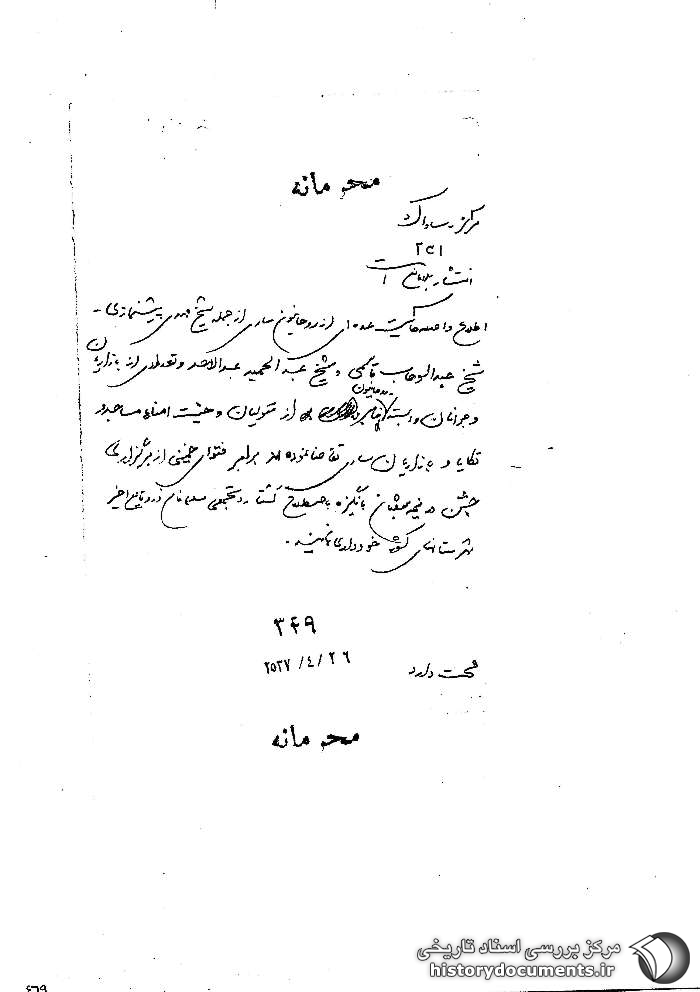 محرمانه
مرکز ساواک
۲۵۱
انتشار بلامانع است
اطلاع واصله حاکیست عده‌ای از روحانیون ساری از جمله شیخ مهدی پیشنمازی -
شیخ عبدالوهاب قاسمی و شیخ عبدالحمید عبدالاحد و تعدادی از بازاریان
و جوانان وابسته روحانیون از متولیان و هیئت امناء مساجد و
تکایا و بازاریان ساری تقاضا نموده‌اند برابر فتوای خمینی از برگزاری
جشن در نیمه شعبان بانگیزه باصطلاح کشتار دستجمعی مسلمانان در وقایع اخیر
شهرستانهای کشور خودداری نمایند.
۳۴۹
۲۵۳۷/۴/۲۶
صحت دارد
محرمانه
مرکز بررسی اسناد تاریخی
historydocuments.ir
۴۶۹